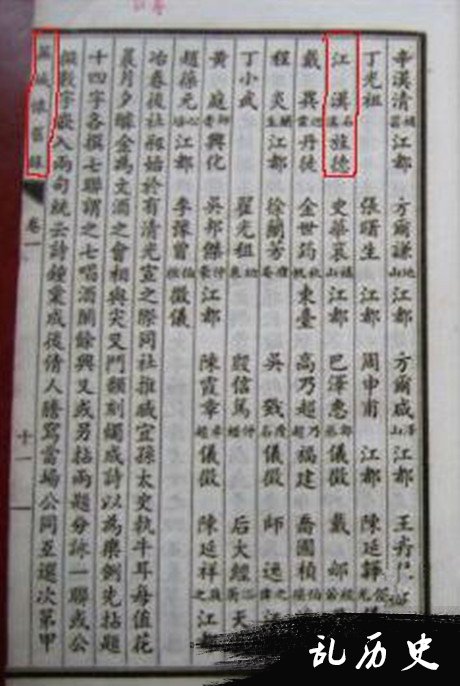 辛漢清 江都 方爾謙 地山 江都 方爾咸 澤山 江都 王
丁光祖 張曙生 周申甫 江都 陳延韡
江漢 石溪 旌德 史華 巴澤惠 儀徵 戴
戴巽 丹徒 金世筠 東臺 高乃超 福建 喬國楨
程炎 江都 徐蘭芳 吳 儀徵 師
丁小武 翟光祖 殷信篤 后大經 天
黄庭 興化 吳邦傑 江都 陳霞章 儀徵 陳延祥
趙葆元 江都 李豫曾 儀徵 江都
冶春後社始於有清光宣之際同社推臧宜孫太史執牛耳每值花
晨月夕醵金為文酒之會相與尖叉鬥韻刻燭成詩以為樂例先拈題
十四字各撰七聯謂之七唱酒闌餘興又或另拈兩題分詠一聯或公
擬數字嵌入兩句就云詩鐘彙成後倩人謄寫當場公同互選次第甲
蕪城懷舊錄 卷一 十一
乱历史